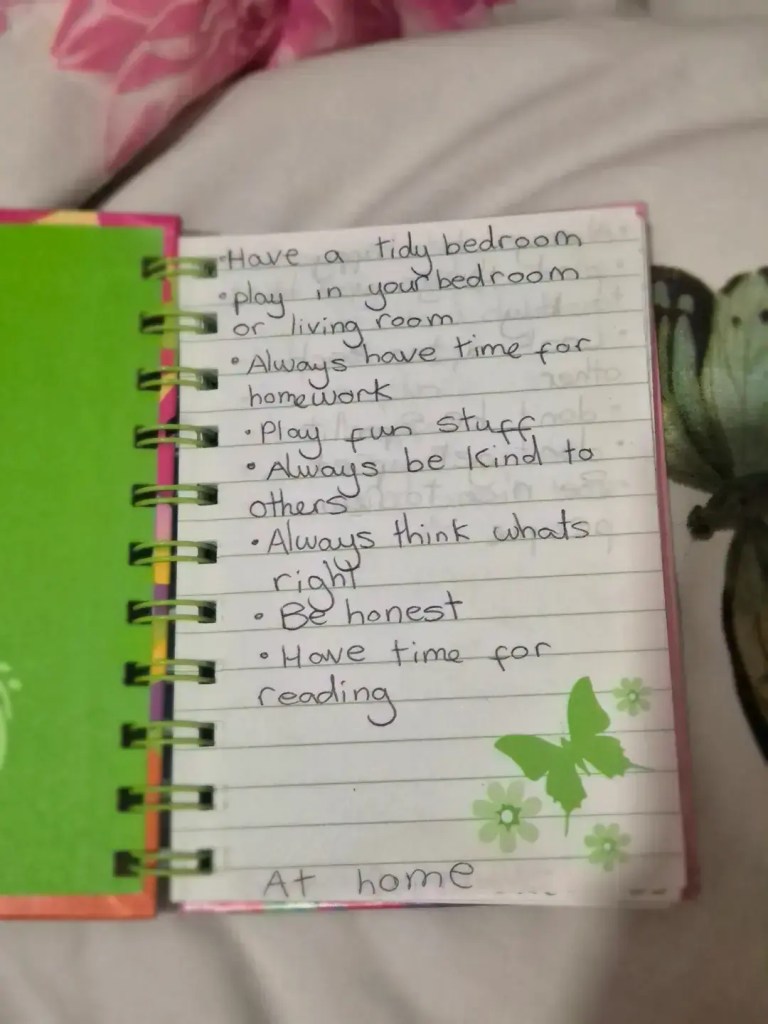 •Have a tidy bedroom
•play in your bedroom
or living room
•Always have time for
homework
•Play fun stuff
•Always be kind to
others
•Always think whats
right
•Be honest
•Have time for
reading
At home